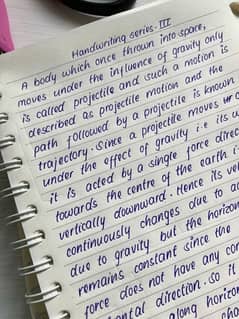 Handwriting series. III
A body which once thrown into space,
moves under the influence of gravity only
is called projectile and such a motion is
described as projectile motion and the
path followed by a projectile is known
trajectory. Since a projectile moves
under the effect of gravity i.e its
it is acted by a single force
towards the centre of the earth
vertically downward. Hence its
continuously changes due to
due to gravity but the
remains constant since the
force does not have any
direction. So it
along